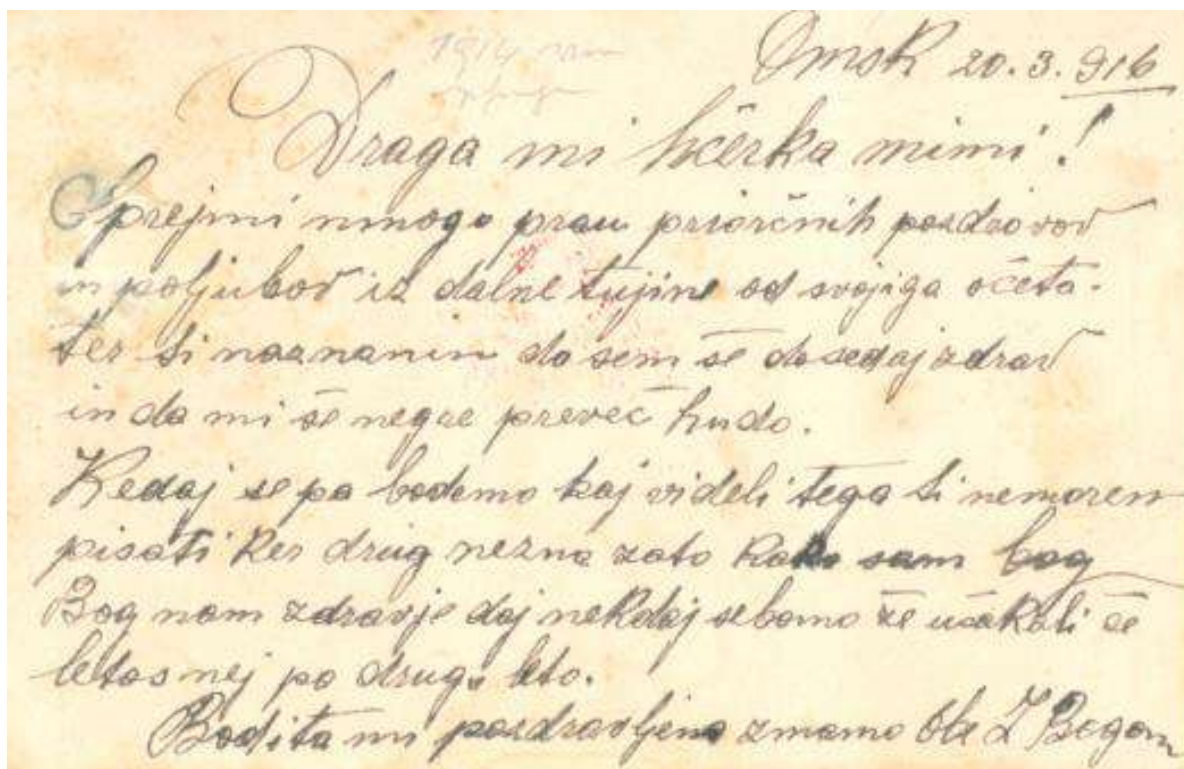 Omsk 20.3.916
Draga mi hčerka mimi!
Sprejmi nmogo prau prisrčnih pozdrovov
in poljubov iz dalne tujine od svojiga očeta.
ter ti naznanim da sem še dosedaj zdrav
in da mi še negre preveč hudo.
Kedaj se pa bodemo kaj videli tega ti nemorem
pisati ker drug nezna zato kako sam bog
Bog nam zdravje daj nekdaj sebomo že učakali če
letos nej po drugu leto.
Bodita mi pozdravljene zmamo obe Z Bogom